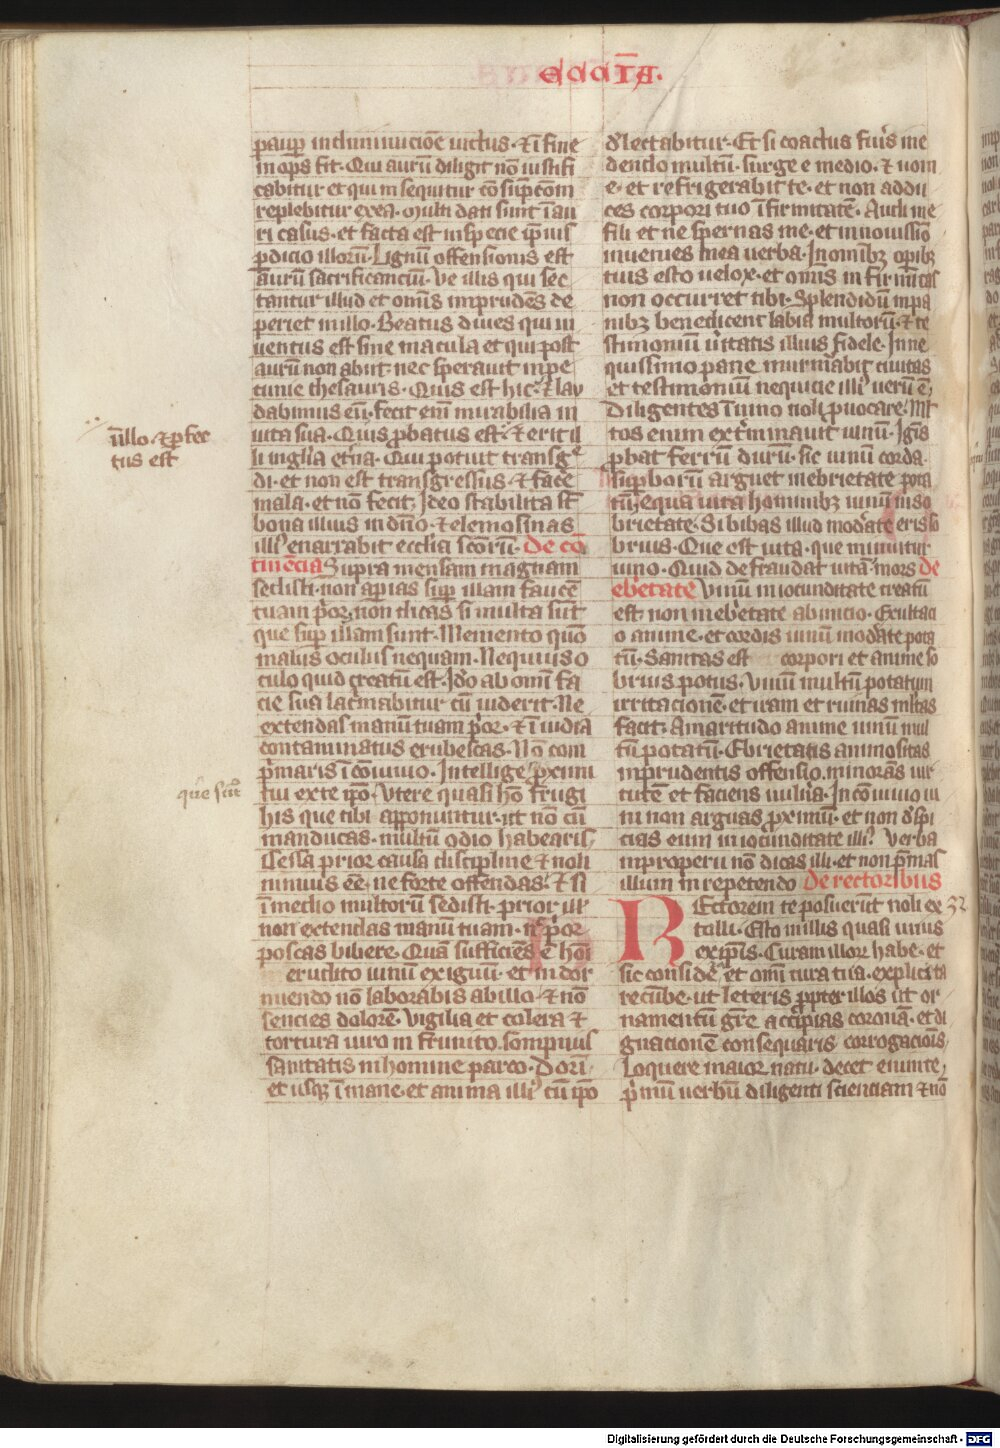 ECCCIA.
paup in diminucione victus. ⁊ ĩ fine
inops fit. Qui aurū diligit nō iustifi
cabitur et qui insequitur cōsūpcōm
replebitur ex ea. Multi dati sunt ĩ au
ri casus. et facta est in specie ip̄ius
p̄dicio illorū. Lignū offensionis est
aurū sacrificanciū. Ve illis qui sec
tantur illud et om̄is imprudēs de
periet in illo. Beatus diues qui in
uentus est sine macula et qui post
aurū non abiit. nec sperauit in pe
cunie thesauris. Quis est hic. ⁊ lau
dabimus eū. fecit eni mirabilia in
uita sua. Quis p̄batus est. ⁊ erit il
li in gl̄ia et̄na. Qui potuit transg̊
di. et non est transgressus. ⁊ face
mala. et nō fecit. Ideo stabilita st̄
bona illius in dn̄o. ⁊ elemosinas
illi᾽ enarrabit eccl̄ia sc̄orū. De cō
tinēcia Supra mensam magnam
sedisti. non ap̄ias sup̄ illam faucē
tuam p̄or. non dicas si multa sūt
que sup̄ illam sunt. Memento quō
malus oculus nequam. Nequius o
culo quid creatū est. Ido ab omī fa
cie sua lac̄mabitur cū uiderit. Ne
extendas manū tuam p̄or. ⁊ ĩ īuidia
contaminatus erubescas. Nō com
p̄maris ĩ conuiuio. Intellige p̄ximi
tui ex te ip̄o. Vtere quasi hō frugi
his que tibi apponuntur. ut nō cū
manducas. multū odio habearis
Cessa prior causa discipline ⁊ noli
nimius eē. ne forte offendas. ⁊ si
ĩ medio multorū sedisti. prior ill᾽
non extendas manū tuam. n̄ p̄or
poscas bibere. Quā sufficiēs ē hoī
erudito uinū exiguū. et in dor
miendo nō laborabis ab illo. ⁊ nō
sencies dolorē. Vigilia et colera ⁊
tortura uiro in frūnito. Sompnus
sanitatis in homine parco. Dorī
et usq̨ ĩ mane. et anima illi᾽ cū ip̄o
ūllo. ⁊ p̄fec
tus est
que sūt
d̓lectabitur. Et si coactus fu̓is in e
dendo multū. surge e medio. ⁊ uom
e. et refrigerabit te. et non addu
ces corpori tuo ĩfirmitatē. Audi me
fili et ne spernas me. et in nouissiō
inuenies mea uerba. In omĩbꝫ op̄ibꝫ
tuis esto uelox. et om̄is infirmitas
non occurret tibi. Splendidū in pa
nibꝫ benedicent labia multorū. ⁊ te
stimoniū u̓itatis illius fidele. In ne
quissimo pane murm̄abit ciuitas
et testimoniū nequicie illi᾽ uerū ē.
Diligentes ĩ uino noli p̄uocare. Ml̄
tos enim ext̓minauit uinū. Ignis
p̄bat ferrū durū. sic uinū corda
sup̄borū arguet in ebrietate pota
tū. Equa uita hominibꝫ uinū in so
brietate. Si bibas illud mod̓ate eris so
brius. Que est uita. que minuitur
uino. Quid defraudat uitā. mors de
ebetate Vinū in iocunditate creatū
est. non in eb̓etate ab inicio. Exultaci
o anime. et cordis uinū mod̓ate pota
tū. Sanitas est corpori et anime so
brius potus. Vinū multū potatum
irritacionē. et iram et ruinas ml̄tas
facit. Amaritudo anime uinū mul
tū potatū. Ebrietatis animositas
inprudentis offensio. minorans uir
tutē et faciens uuln̓a. In cōuiuio ui
ni non arguas p̄ximū. et non d̓spi
cias eum in iocunditate illi᾽. Verba
inproperii nō dicas illi. et non p̄mas
illum in repetendo De rectoribus
Rectorem te posuerūt noli ex 32
tolli. Esto in illis quasi unus
ex ip̄is. Curam illor habe. et
sic consid̓e et omi cura tua. explicita
recūbe. ut leteris p̄pter illos ut or
namentū gr̄e accipias coronā. et di
gnacionē consequaris corrogaciois
Loquere maior natu. decet enim te.
p̄mū uerbū diligenti scienciam ⁊ nō
Digitalisierung gefördert durch die Deutsche Forschungsgemeinschaft - DFG